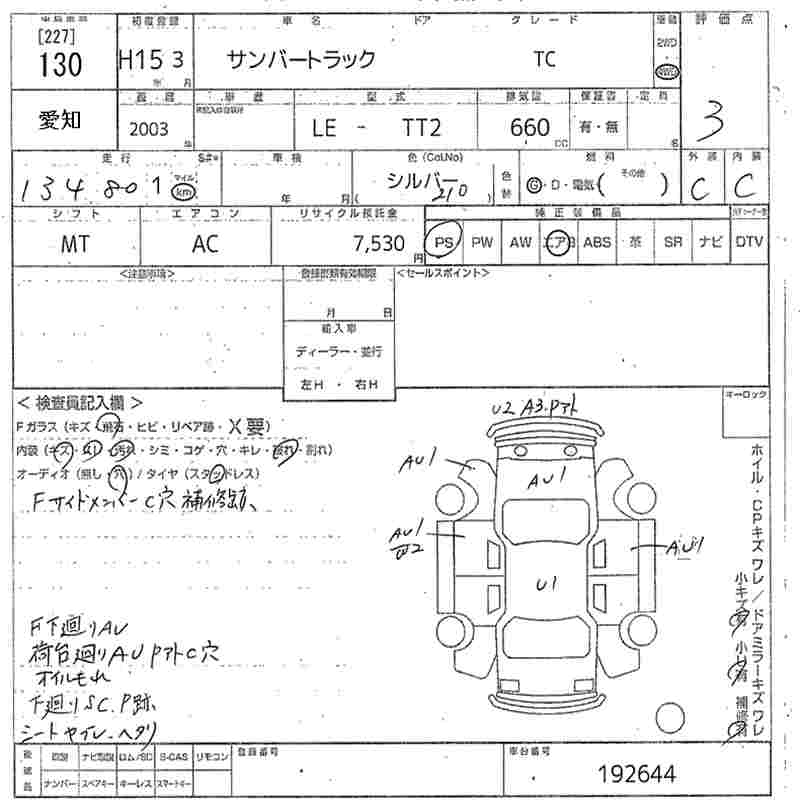 [227] 初度登録 車名 ドア グレード 車歴 評価点
130 H15 3 サンバートラック TC 2WD 4WD
年 月
愛知 2003 型式 LE - TT2 排気量 660 cc 保証書 有・無 定員 名 3
走行 車検 色 (Col.No) 燃料 外装 内装
134801 マイル km 年 月 シルバー 210 色替 G・D・電気( その他 ) C C
シフト エアコン リサイクル預託金 純正装備品
MT AC 7,530円 PS PW AW エアB ABS 革 SR ナビ DTV
<注意事項> <セールスポイント>
月 日
輸入車
ディーラー・並行
左H ・ 右H
<検査員記入欄> キーロック
Fガラス (キズ・飛石・ヒビ・リペア跡・X要)
内装 (キズ・汚れ・シミ・コゲ・穴・キレ・割れ)
オーディオ (無し・穴) / タイヤ (スタッドレス)
Fサイドメンバー C穴 補修跡、
U2 A3.Pアト
AU1
AU1
AU1
W2
AU1
U1
ホイル・CPキズ ワレ / ドアミラーキズ ワレ
小キズ有 小U有 補修有
F下廻りAU
荷台廻りAU PアトC穴
オイルもれ
下廻りSC.P跡、
シートヤブレ.ヘタリ
後送品 取説 ナビ取説 ロム/SD S-CAS リモコン 登録番号 車台番号
ナンバー スペアキー キーレス スマートキー 192644